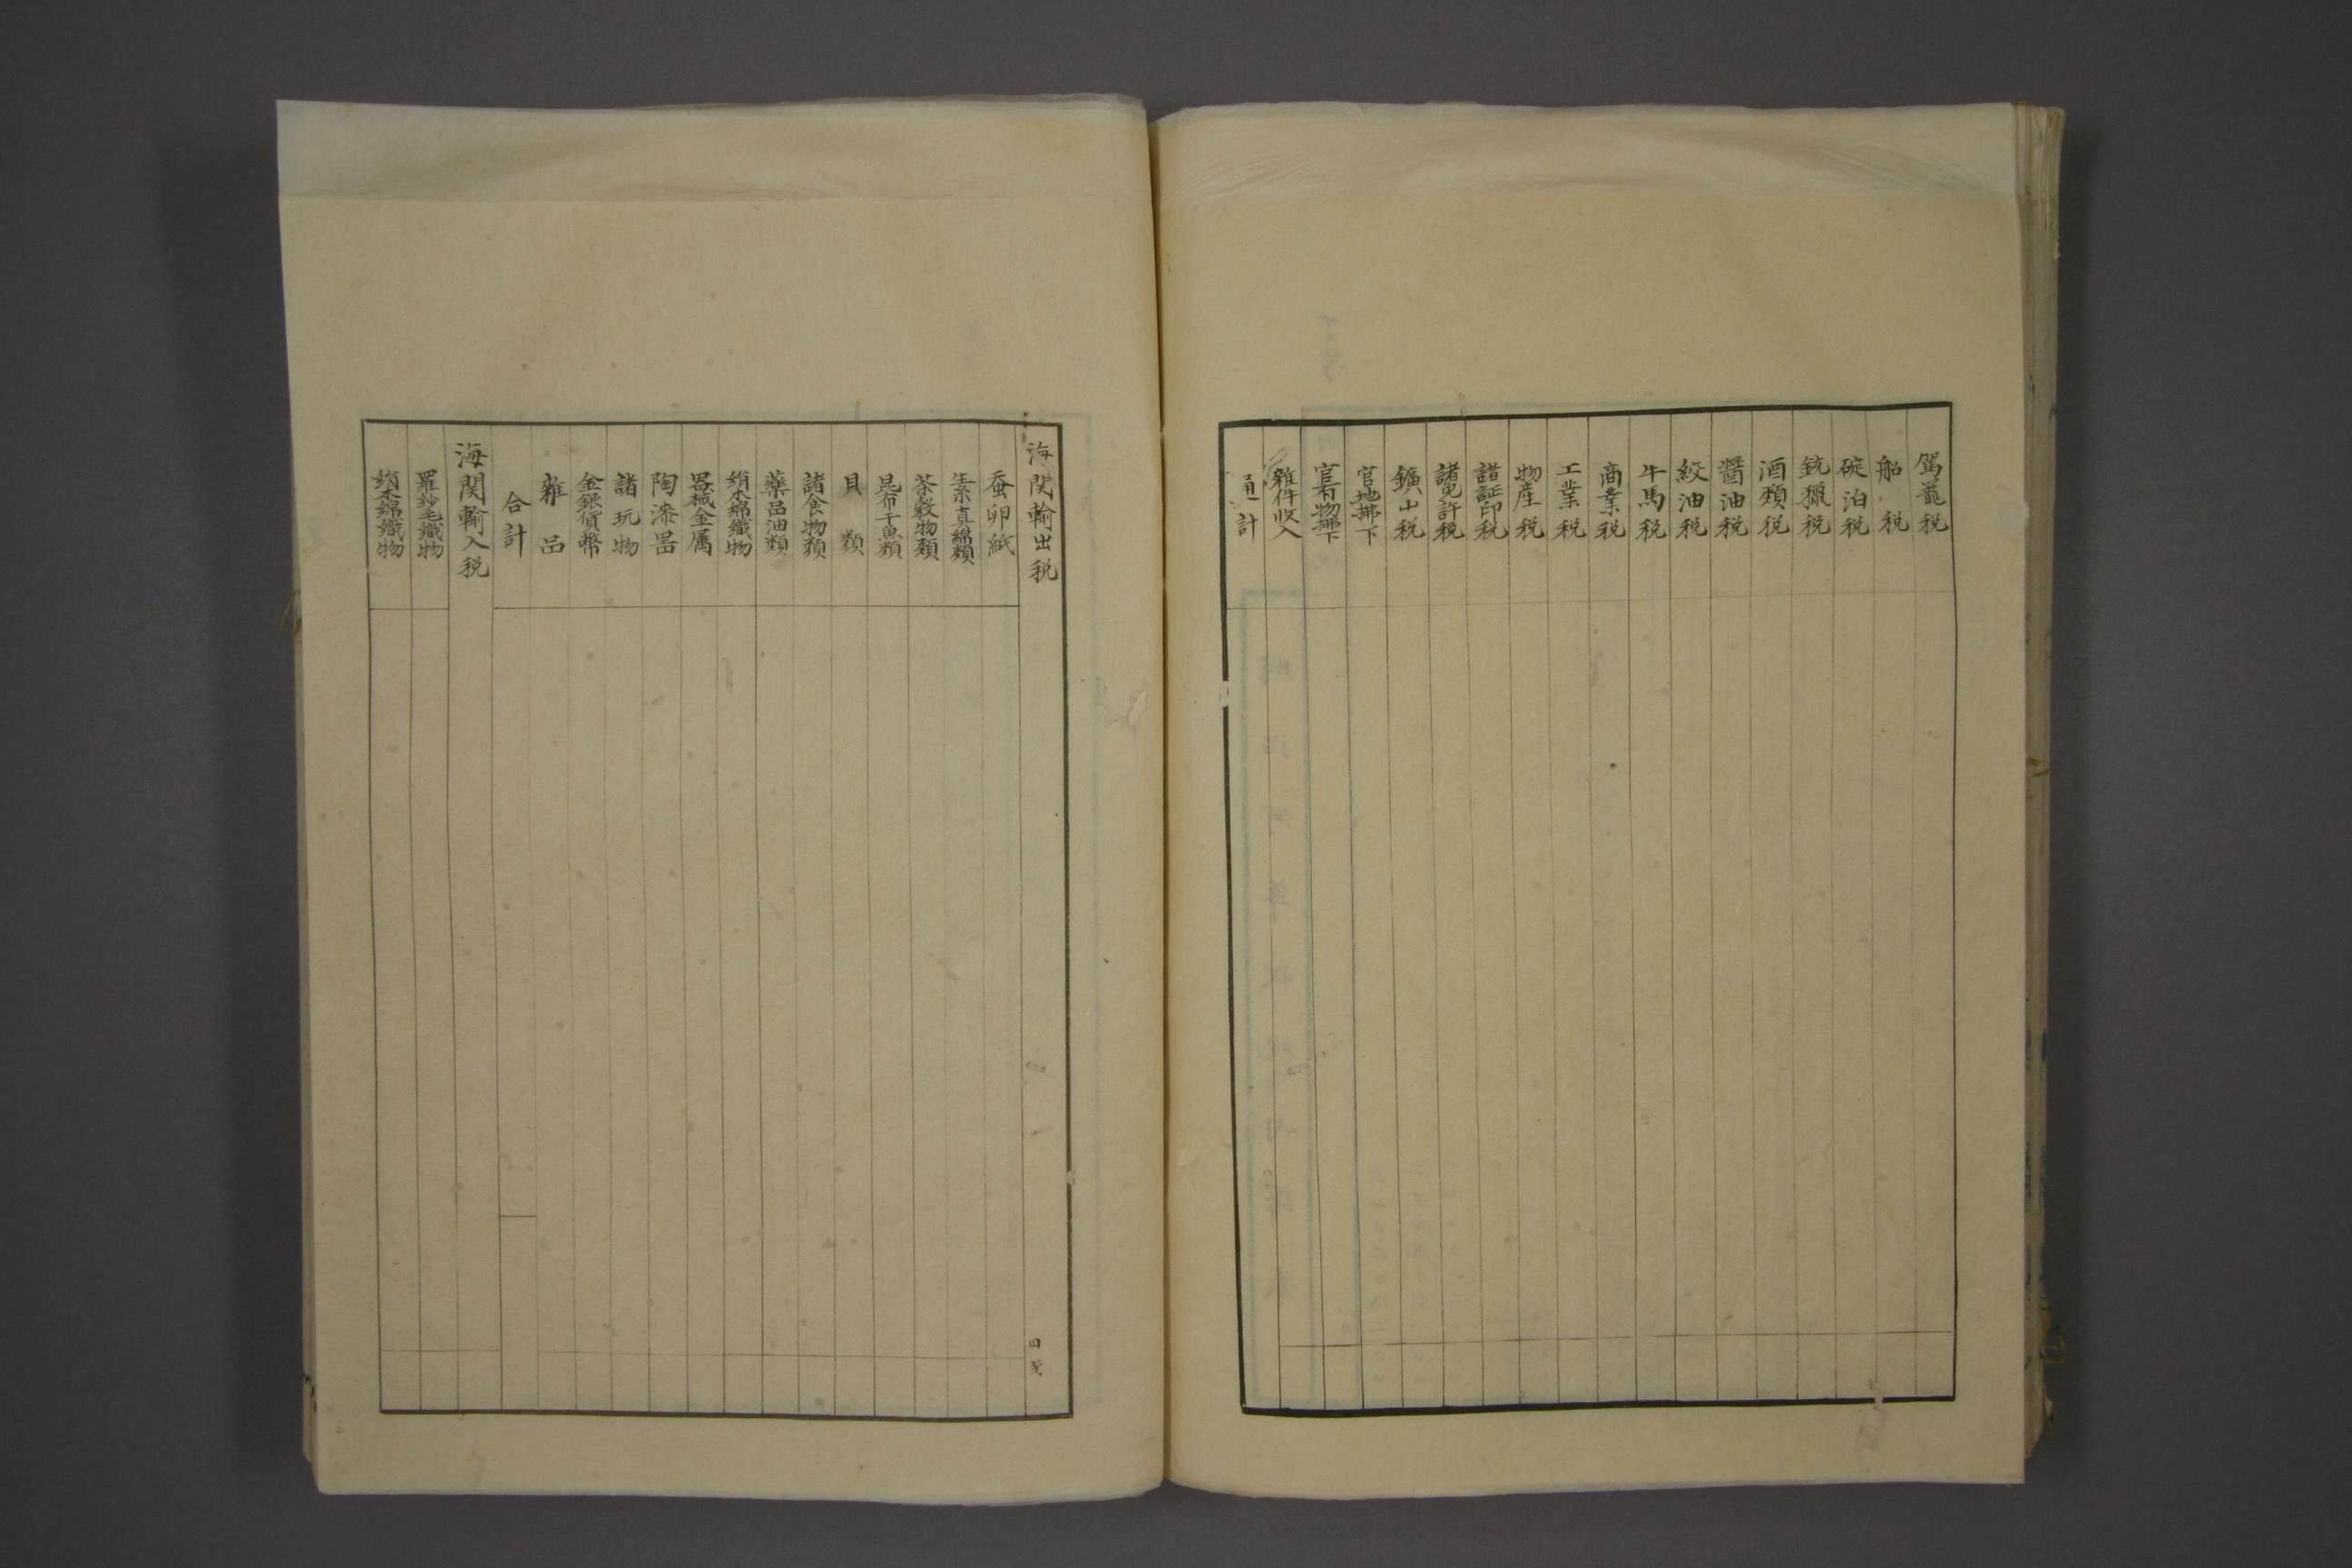 駕籠税
船税
碇泊税
銃猟税
酒類税
醤油税
絞油税
牛馬税
商業税
工業税
物産税
諸証印税
諸免許税
鑛山税
官地拂下
官有物拂下
雑件收入
通計
海関輸出税
蚕卵紙
生糸真綿類
茶穀物類
昆布干魚類
貝類
諸食物類
藥品油類
絹木綿織物
器械金属
陶漆器
諸玩物
金銀貨幣
雑品
合計
海関輸入税
羅紗毛織物
絹木綿織物